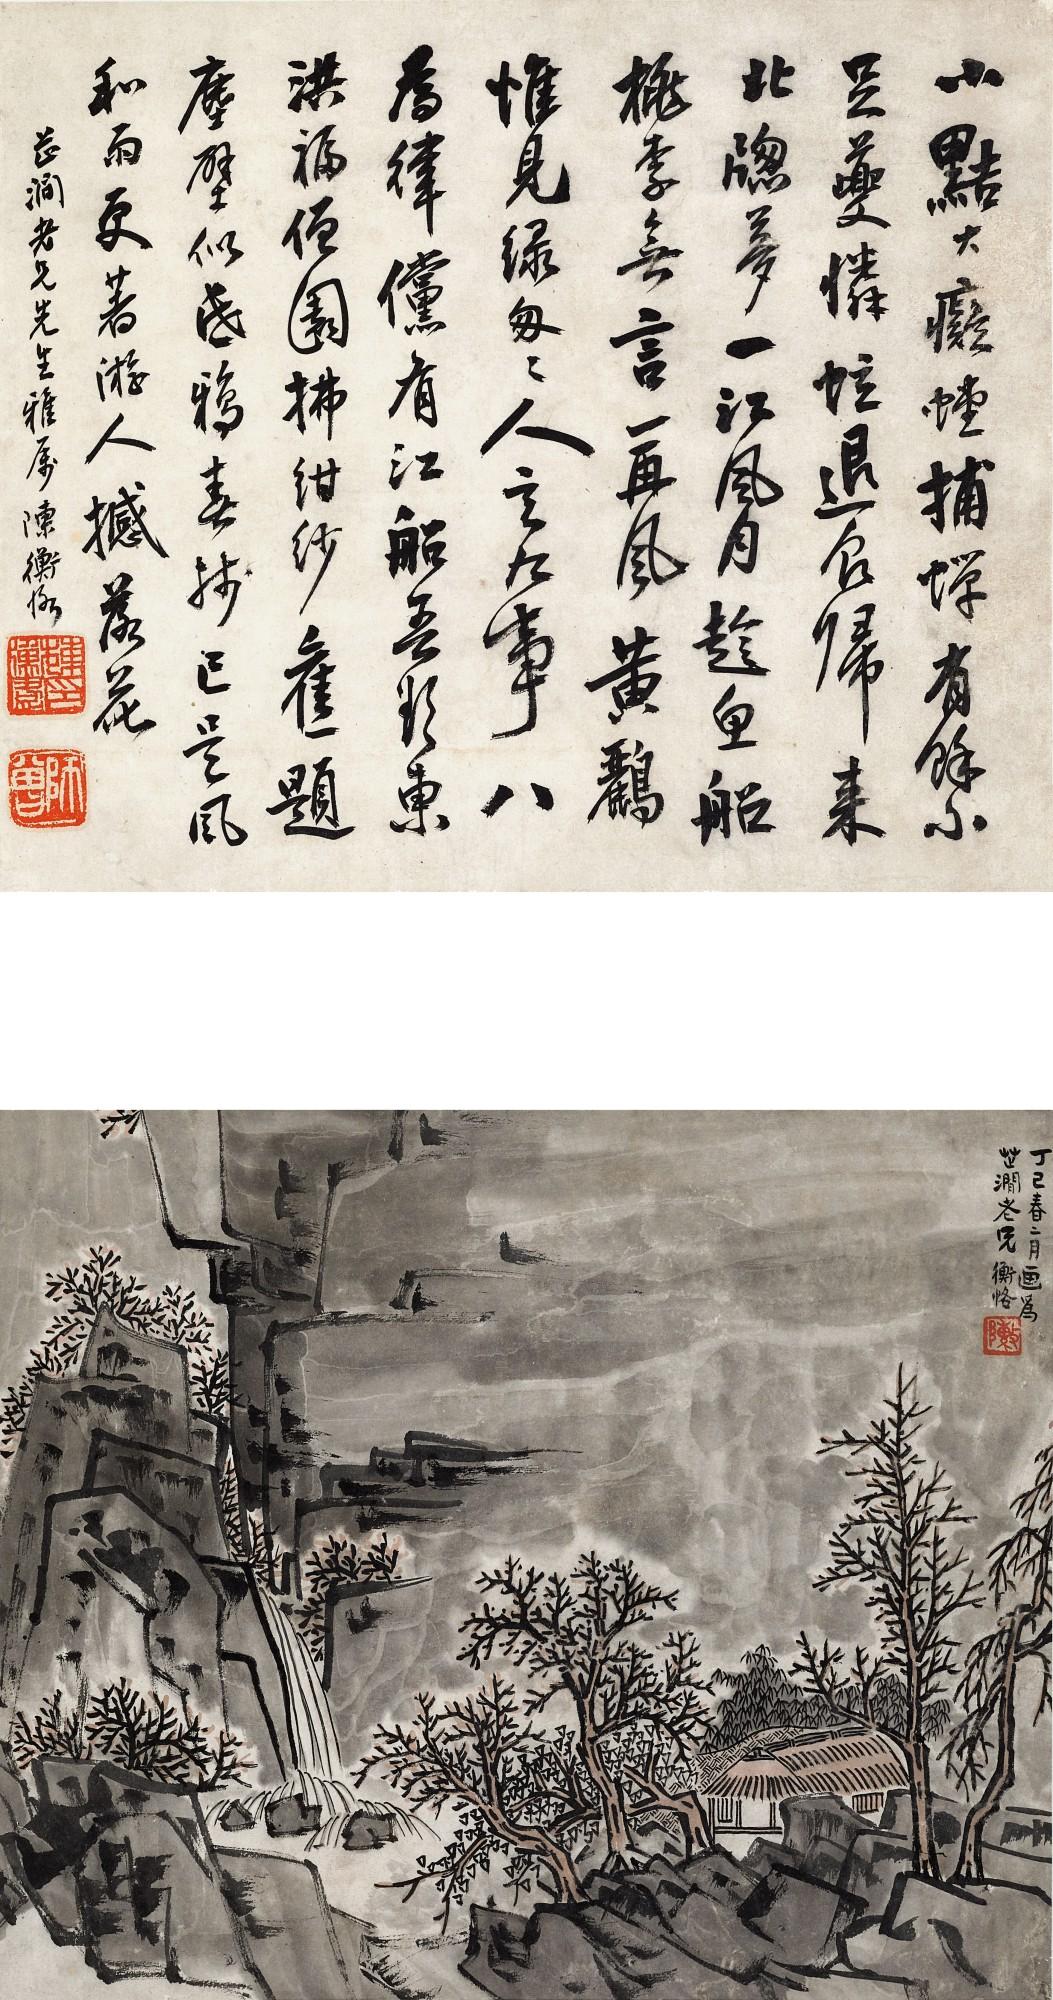 小黠大癡螳捕蟬有餘不
足夔憐蚿退食歸來
北牕夢一江風月趁魚船
桃李無言一再風黃鸝
惟見綠匆匆人言九事八
為律儻有江船吾欲東
洪福僧園拂紺紗舊題
塵壁似昏鴉春殘已是風
和雨更著游人撼落花
芷澗老兄先生雅屬 陳衡恪
師曾
丁巳春二月画為
芷澗老兄 衡恪
陳